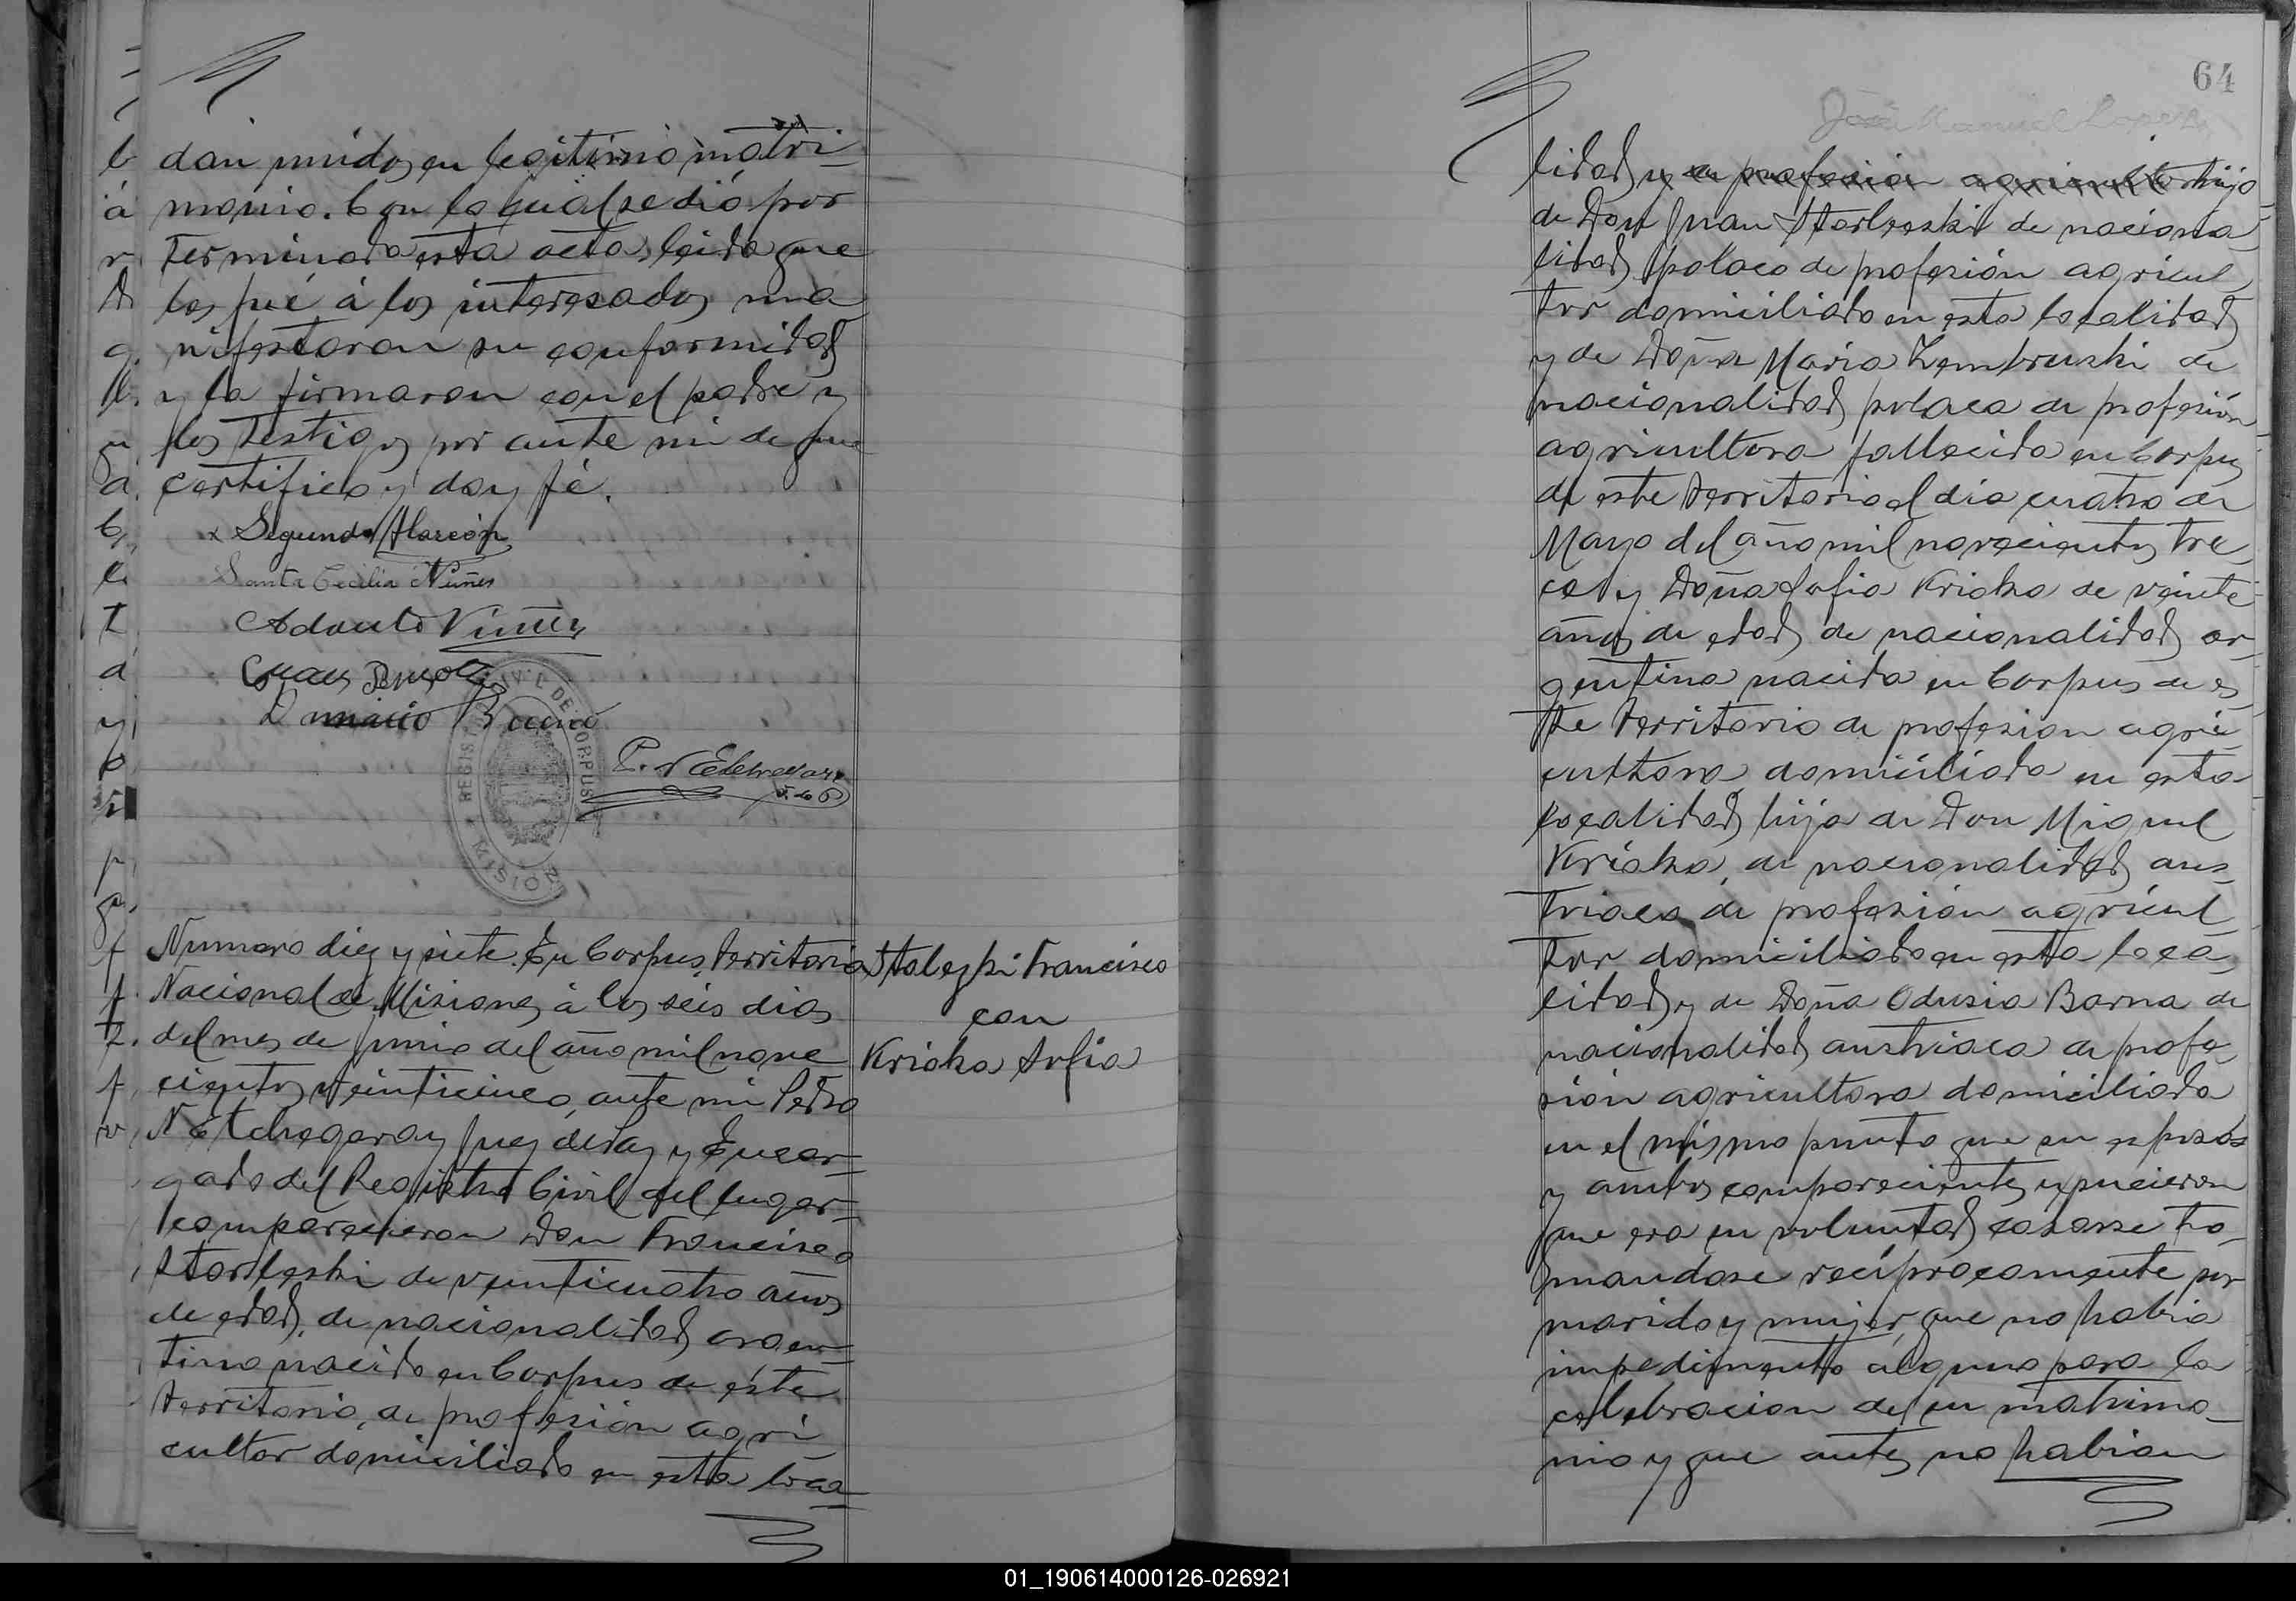 dan unidos en legitimo matri-
monio. Con lo cual se dió por
terminada esta acta, leida que
les fué á los interesados ma
nifestaron su conformidad
y la firmaron con el padre y
los testigos por ante mi de que
certifico y doy fé.
x Segundo Alarcón
Santa Cecilia Nuñes
Adauto
Juan
Bueno
P. N Etchegaray
J. de P
REGISTRO CIVIL DE CORPUS
MISIONES
Numero diez y siete. En Corpus, territorio
Nacional de Misiones á los séis dias
del mes de Junio del año mil nove
cientos veinticinco, ante mi Pedro
N Etchegaray Juez de Paz y Encar=
gado del Registro Civil del lugar=
comparecieron Don Francisco
Starleski de veinticuatro años
de edad, de nacionalidad argen=
tino nacido en Corpus de éste
territorio, de profesión agri
cultor domiciliado en esta loca=
Staleski Francisco
con
Kricko Sofia
64
José Manuel Lopez
lidad y de profesión agricultor hijo
de Don Juan Starleski de naciona
lidad polaco de profesión agricul
tor domiciliado en esta localidad
y de Doña Maria Zembruski de
nacionalidad polaca de profesión
agricultora fallecida en Corpus
de este territorio el dia cuatro de
Mayo del año mil novecientos tre
ce y Doña Sofia Kricko de veinte
años de edad, de nacionalidad ar-
gentina nacida en Corpus de es
te territorio de profesion agri
cultora domiciliada en esta
localidad, hija de Don Miguel
Kricko, de nacionalidad aus
triaca de profesión agricul
tor domiciliado en esta loca
lidad y de Doña Odusia Barna de
nacionalidad austriaca de profe
sión agricultora domiciliada
en el mismo punto que su esposo
y ambos comparecientes expusieron
que era su voluntad casarse to-
mandose recíprocamente por
marido y mujer, que no habia
impedimento alguno para la
celebracion de su matrimo-
nio y que antes no habian
01_190614000126-026921